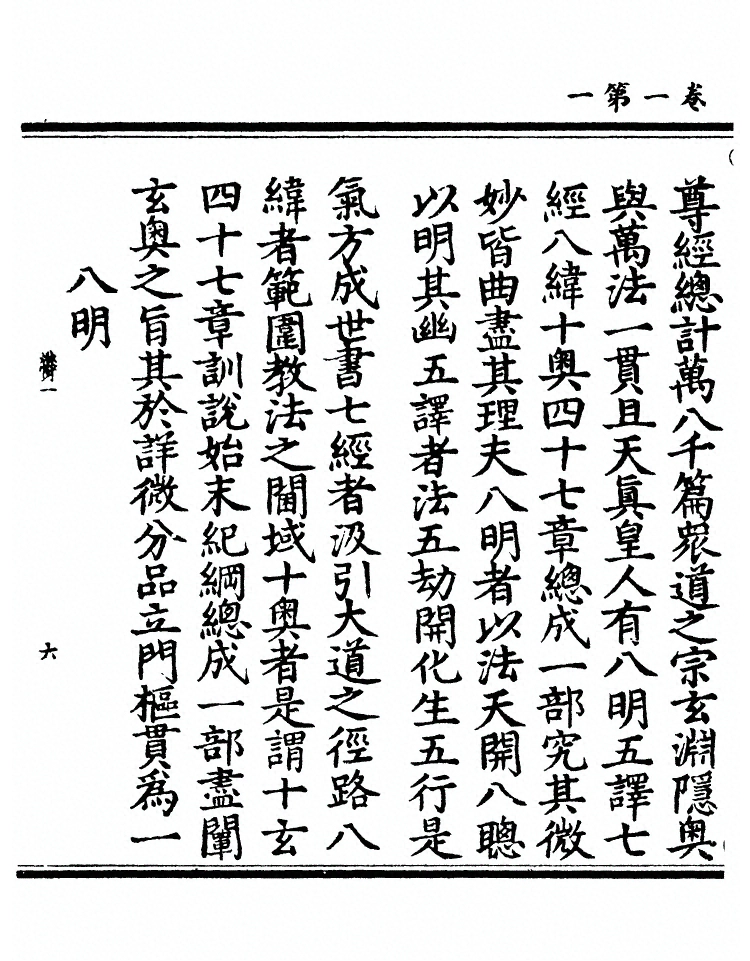 卷一第一
尊經總計萬八千篇衆道之宗玄淵隱奧
與萬法一貫且天眞皇人有八明五譯七
經八緯十奥四十七章總成一部究其微
妙皆曲盡其理夫八明者以法天開八聰
以明其幽五譯者法五劫開化生五行是
氣方成世書七經者汲引大道之徑路八
緯者範圍教法之閫域十奥者是謂十玄
四十七章訓說始末紀綱總成一部盡闡
玄奥之旨其於詳微分品立門樞貫爲一
八明
一
六